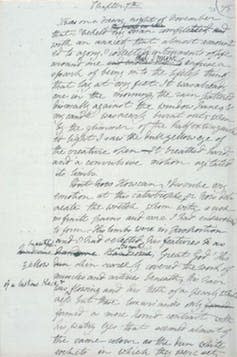 Chapter 7th
75
It was on a dreary night of November
that I beheld my man compleated and
with an anxiety that almost amount
ed to agony, I collected instruments of life
around me that I might infuse a
spark of being into the lifeless thing
that lay at my feet. It was already
one in the morning, the rain pattered
dismally against the window panes &
my candle was nearly burnt out, when
by the glimmer of the half extinguish
ed light I saw the dull yellow eye of
the creature open. It breathed hard,
and a convulsive motion agitated
its limbs.
But how How can I describe my
emotion at this catastrophe; or how deli
neate the wretch whom with such
infinite pains and care I had endeavoured
to form. His limbs were in proportion
and I had selected his features as
handsome Handsome; Great God! His
yellow skin scarcely covered the work of
muscles and arteries beneath; his hair
was flowing and his teeth of a pearly white
ness but these luxuriances only
formed a more horrid contrast with
his watry eyes that seemed almost of
the same colour as the dun white
sockets in which they were set